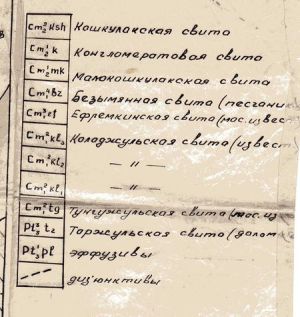 Cm₂²Ksh Кошкулакская свита
Cm₂¹k Конгломератовая свита
Cm₂¹mk Малокошкулакская свита
Безымянная свита (песчани
Ефремкинская свита (мос. извест
Cm₁²kl₃ Колоджульская свита (извест
Cm₁²kl₂ — 〃 —
Cm₁²kl₁ — 〃 —
Cm₁²tg Тунгужульская свита (мос. из
Pt₃²tz Торжульская свита (далом
Pt₃¹pl эффузивы
дизъюнктивы